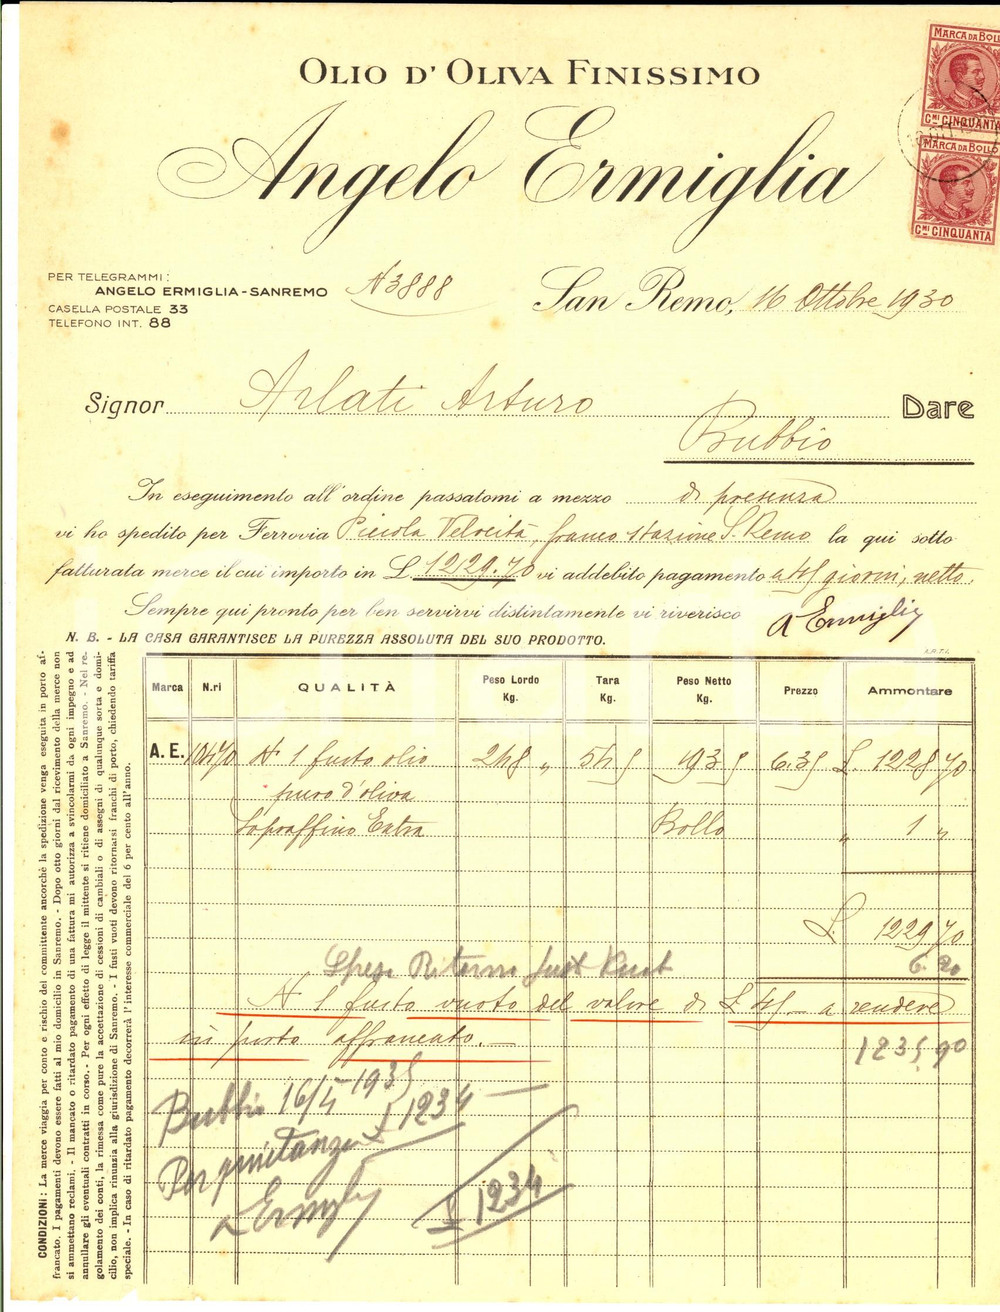 OLIO D'OLIVA FINISSIMO
Angelo Ermiglia
MARCA DA BOLLO
CMI CINQUANTA
MARCA DA BOLLO
CMI CINQUANTA
PER TELEGRAMMI:
ANGELO ERMIGLIA-SANREMO
CASELLA POSTALE 33
TELEFONO INT. 88
N 3888
San Remo, 16 Ottobre 1930
Signor Arlati Arturo Dare
Bubbio
In eseguimento all'ordine passatomi a mezzo di presenza
vi ho spedito per Ferrovia Piccola Velocità, franco stazione S. Remo la qui sotto
fatturata merce il cui importo in L. 1229.70 vi addebito pagamento a 45 giorni, netto.
Sempre qui pronto per ben servirvi distintamente vi riverisco A Ermiglia
N. B. - LA CASA GARANTISCE LA PUREZZA ASSOLUTA DEL SUO PRODOTTO.
Marca N.ri QUALITÀ Peso Lordo Kg. Tara Kg. Peso Netto Kg. Prezzo Ammontare
A. E. 10470 N 1 fusto olio 248 „ 54 5 193 5 6.35 L. 1228 70
puro d'oliva
Sopraffino Extra Bollo „ 1 „
L. 1229 70
Spese Ritorno 6.20
N 1 fusto vuoto del valore di L. 45 - a rendere
in porto affrancato. -
1235,90
Bubbio 16/5 1935 1234
Per quietanza
A Ermiglia
1234
CONDIZIONI: La merce viaggia per conto e rischio del committente ancorchè la spedizione venga eseguita in porto af-
francato. I pagamenti devono essere fatti al mio domicilio in Sanremo. - Dopo otto giorni dal ricevimento della merce non
si ammettono reclami. - Il mancato o ritardato pagamento di una fattura mi autorizza a svincolarmi da ogni impegno e ad
annullare gli eventuali contratti in corso. - Per ogni effetto di legge il mittente si ritiene domiciliato a Sanremo. - Nel re-
golamento dei conti, la rimessa come pure la accettazione di cessioni di cambiali o di assegni di qualunque sorta e domi-
cilio, non implica rinunzia alla giurisdizione di Sanremo. - I fusti vuoti devono ritornarsi franchi di porto, chiedendo tariffa
speciale. - In caso di ritardato pagamento decorrerà l'interesse commerciale del 6 per cento all'anno.